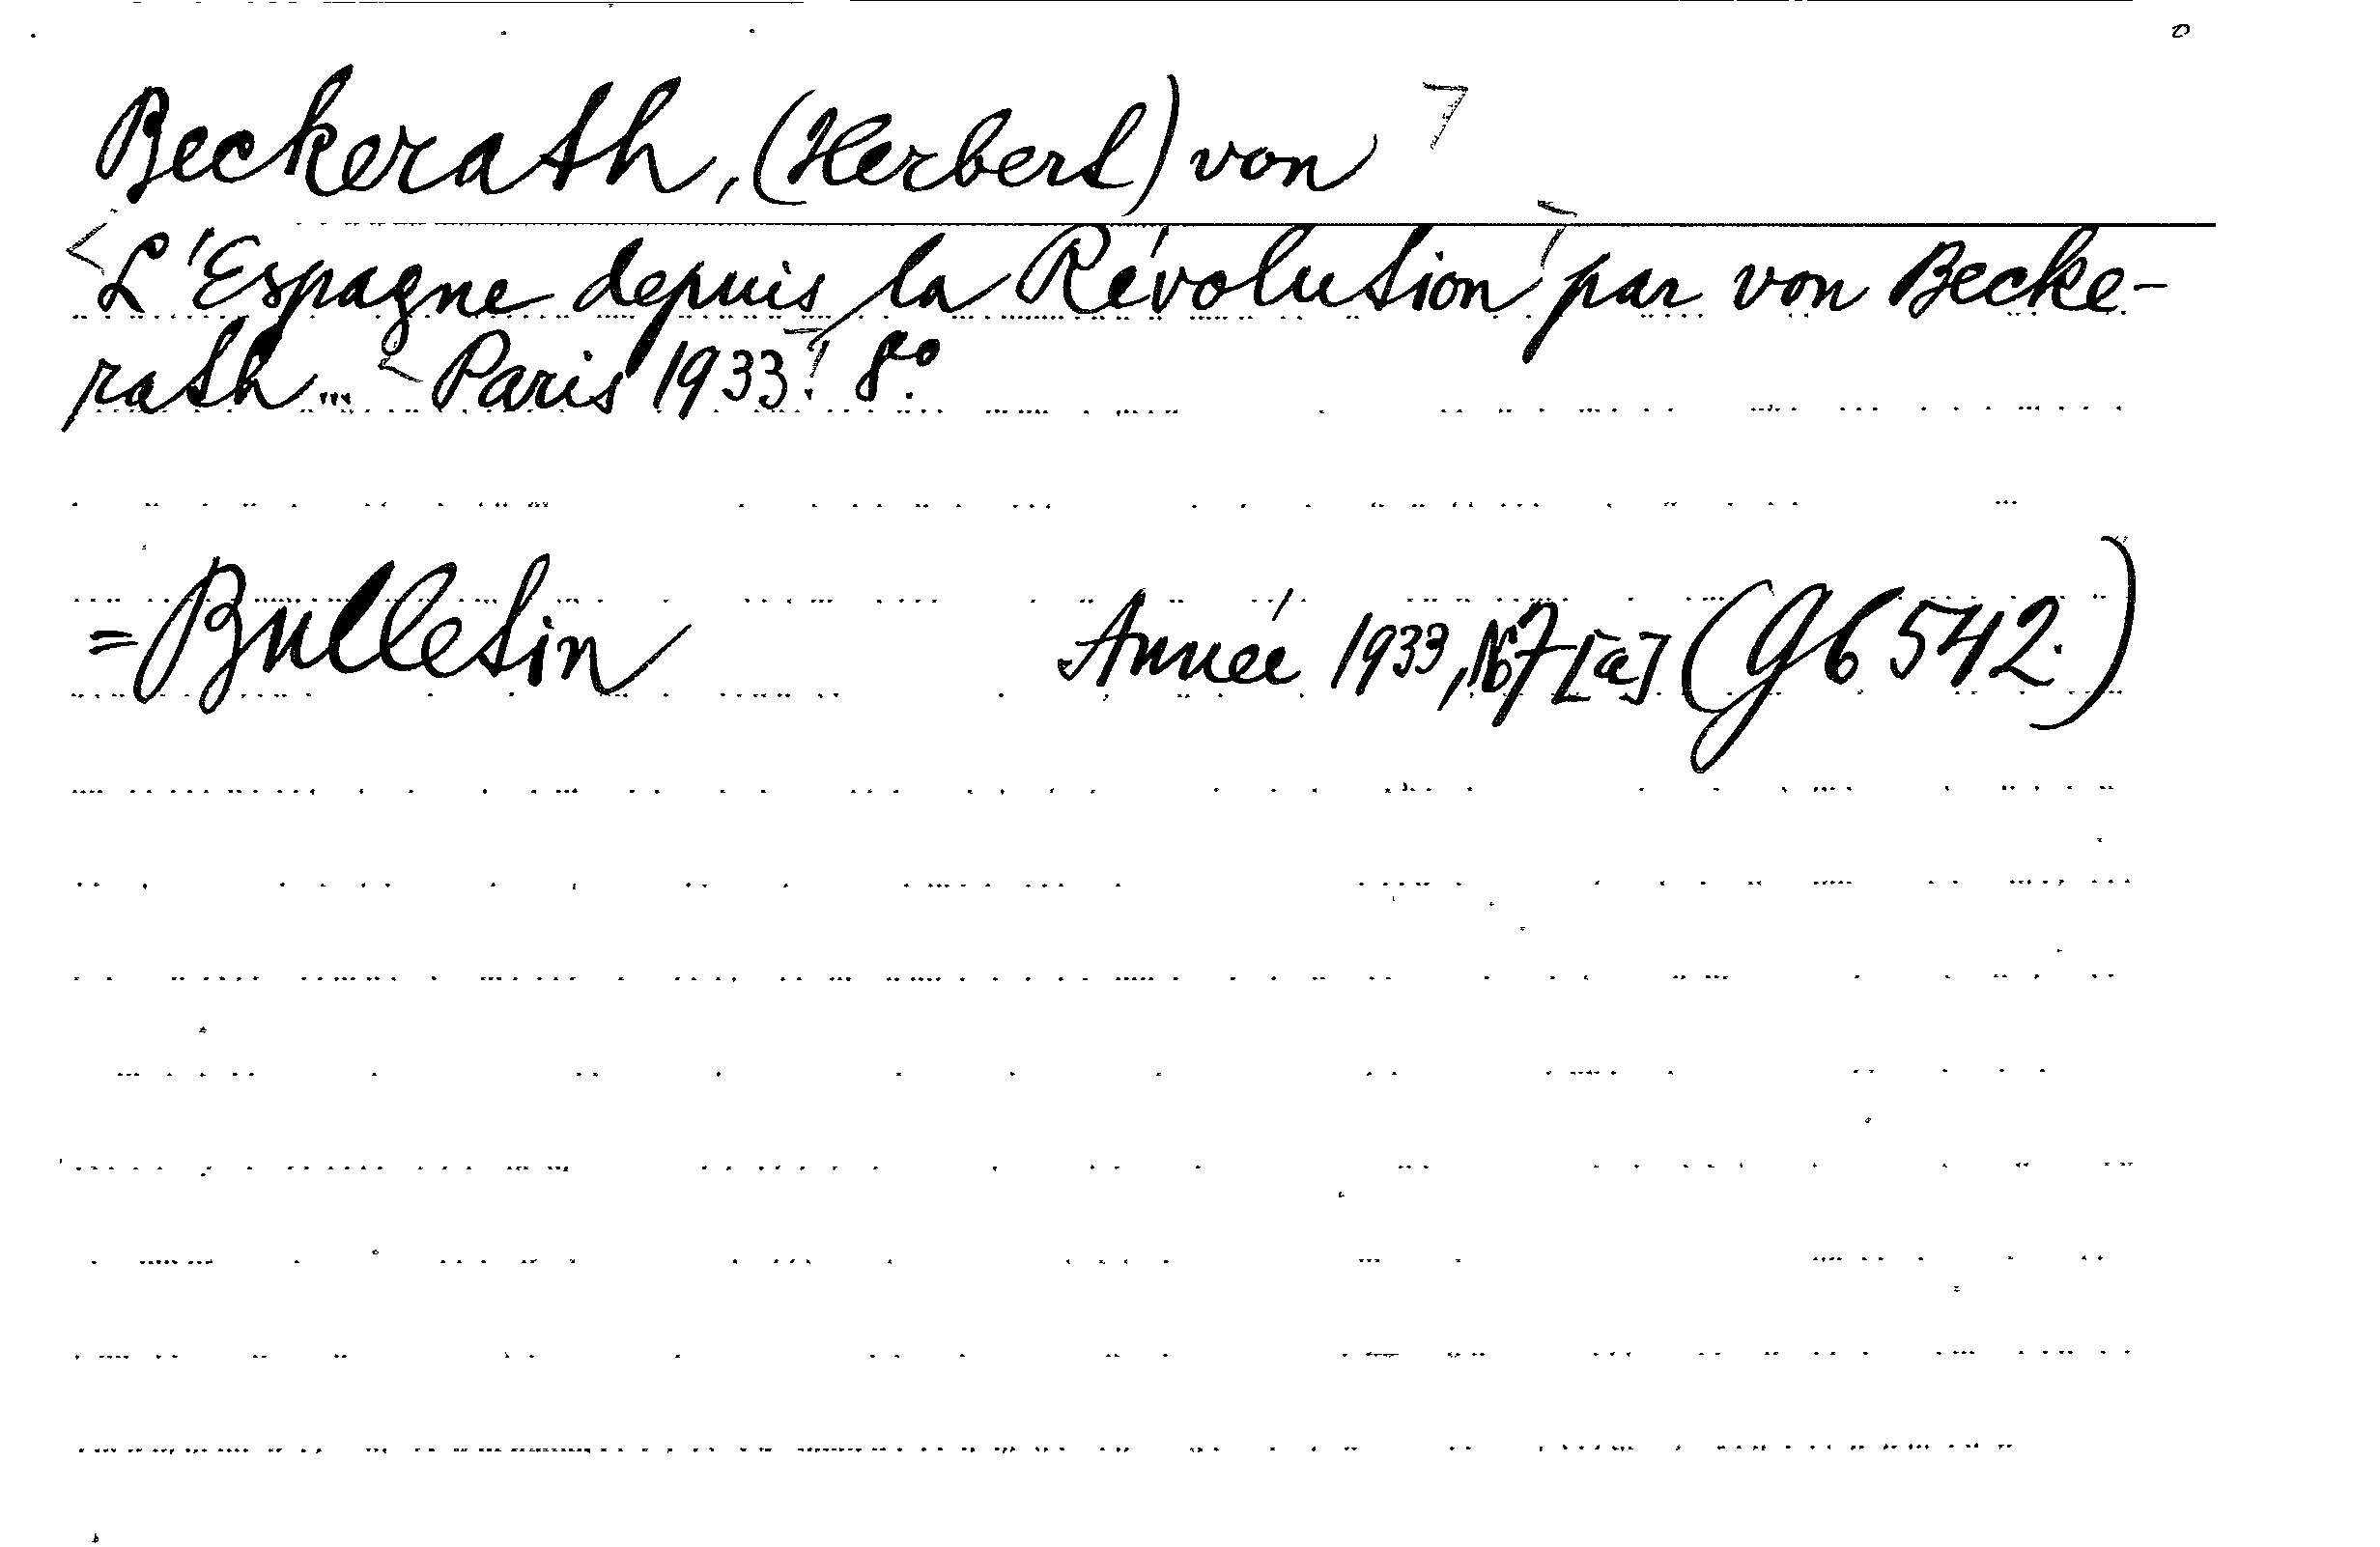 Beckerath, (Herbert) von
L'Espagne depuis la Révolution par von Becke-
rath... Paris 1933. 8°.
= Bulletin Année 1933, No 7 [a] (G6 542.)